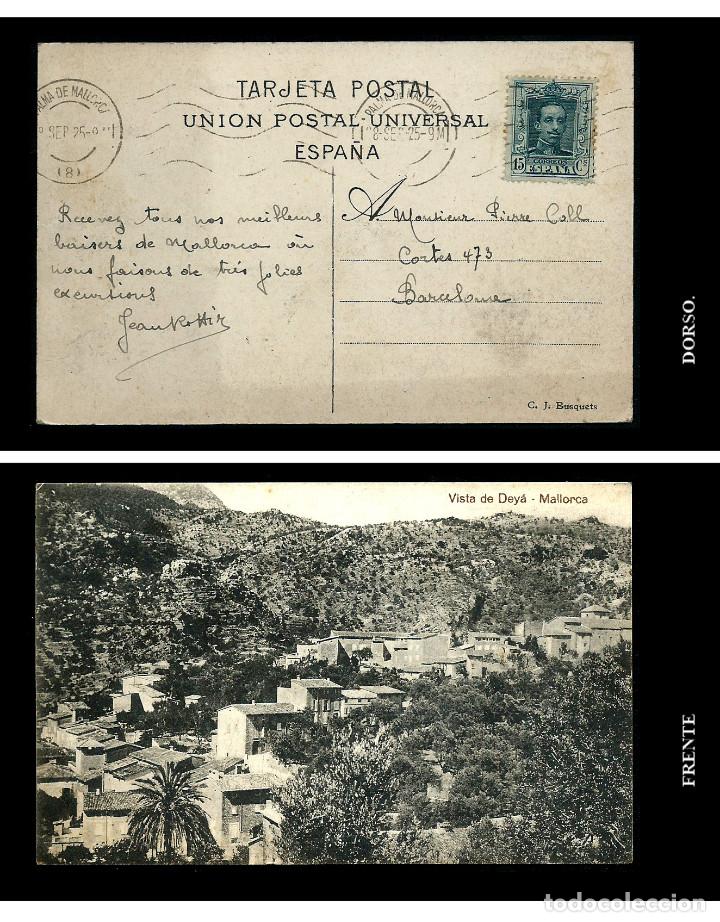 TARJETA POSTAL
UNION POSTAL UNIVERSAL
ESPAÑA
PALMA DE MALLORCA
(8)
PALMA DE MALLORCA
8-SEP.25-9M
15 CORREOS Cs
ESPAÑA
Recevez tous nos meilleurs
baisers de Mallorca où
nous faisons de très jolies
excursions
Jean
A. Monsieur Pierre Coll
Cortes 473
Barcelone
C. J. Busquets
DORSO.
Vista de Deyá - Mallorca
FRENTE
todocoleccion